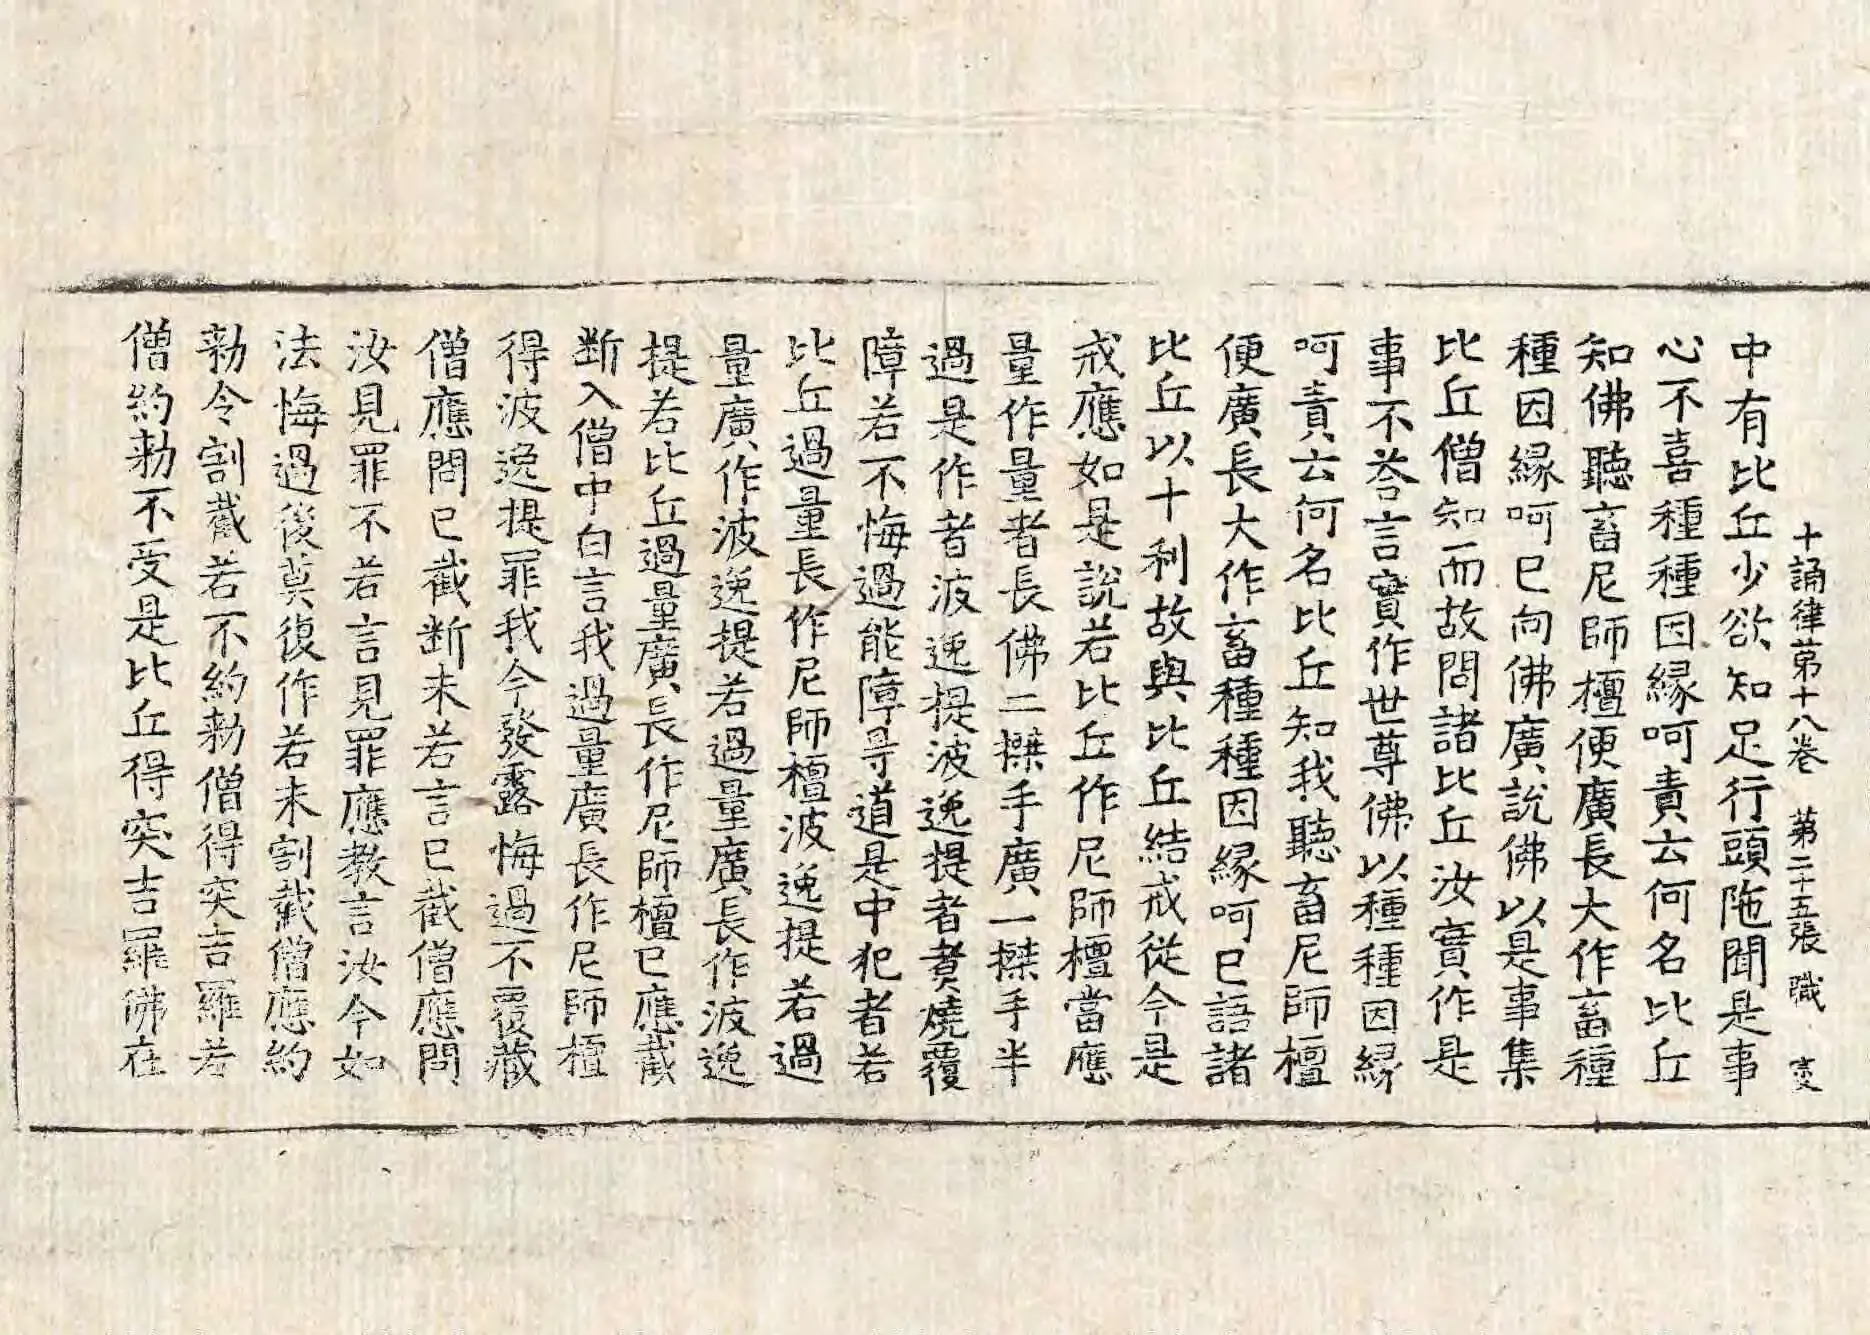 十誦律第十八卷　第二十五張　職　㝎
中有比丘少欲知足行頭陁聞是事
心不喜種種因緣呵責云何名比丘
知佛聽畜尼師檀便廣長大作畜種
種因緣呵已向佛廣說佛以是事集
比丘僧知而故問諸比丘汝實作是
事不荅言實作世尊佛以種種因緣
呵責云何名比丘知我聽畜尼師檀
便廣長大作畜種種因緣呵已語諸
比丘以十利故與比丘結戒從今是
戒應如是說若比丘作尼師檀當應
量作量者長佛二搩手廣一搩手半
過是作者波逸提波逸提者煑燒覆
障若不悔過能障㝵道是中犯者若
比丘過量長作尼師檀波逸提若過
量廣作波逸提若過量廣長作波逸
提若比丘過量廣長作尼師檀已應截
斷入僧中白言我過量廣長作尼師檀
得波逸提罪我今發露悔過不覆藏
僧應問已截斷未若言已截僧應問
汝見罪不若言見罪應教言汝今如
法悔過後莫復作若未割截僧應約
勑令割截若不約勑僧得突吉羅若
僧約勑不受是比丘得突吉羅佛在